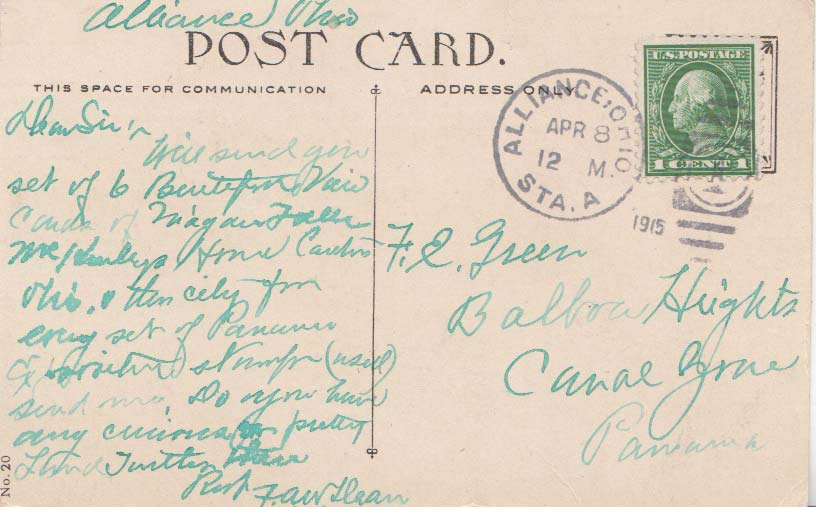 Alliance Ohio
POST CARD.
THIS SPACE FOR COMMUNICATION
ADDRESS ONLY
U.S. POSTAGE
1 CENT 1
ALLIANCE, OHIO
APR 8
12 M.
STA. A
1915
Dear Sir:
Will send you
set of 6 Beutiful View
Cards of Niagara Falls
McKinleys Home Canton
Ohio, & this city for
every set of Panama
Exposition stamps (used)
send me. Do you have
any curious or pretty
Land Turtles there
Resp F.A.W. Dean
F. E. Green
Balboa Heights
Canal Zone
Panama
No. 20